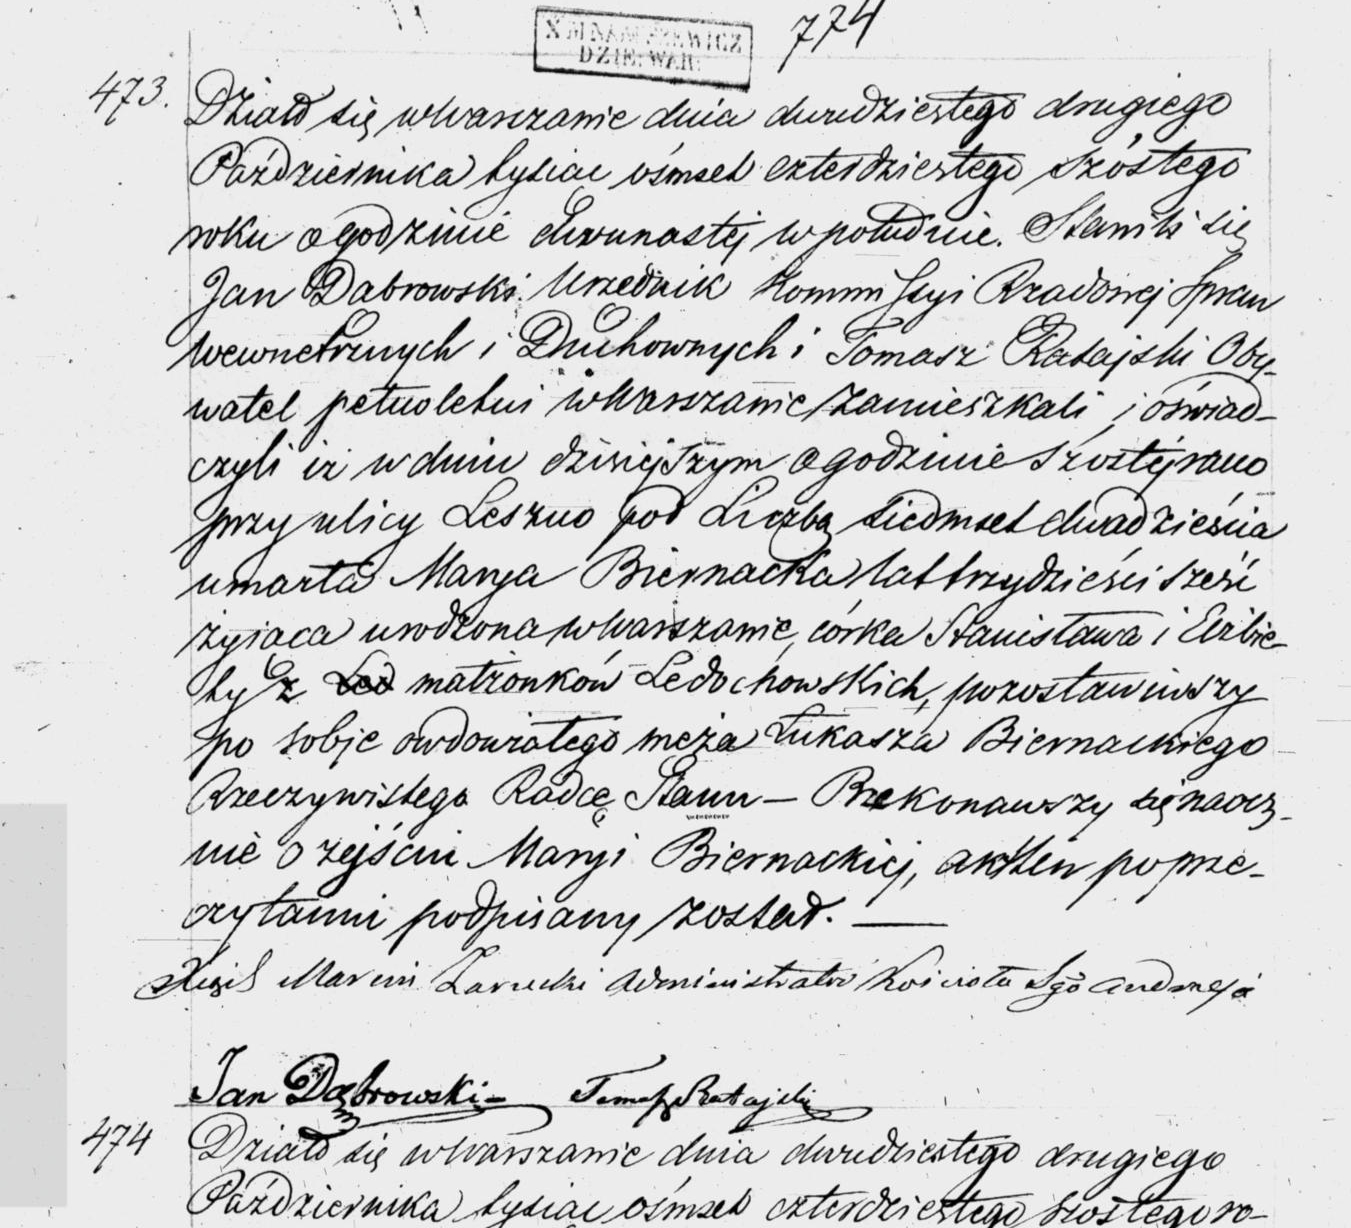 774
DZIE: WAR:
473.
Działo się w Warszawie dnia dwudziestego drugiego
Października tysiac ośmset czterdziestego szóstego
roku o godzinie dwunastéj w południe. Stawili się
Jan Dabrowski Urzednik Kommissyi Rzadowej Spraw
Wewnetrznych i Duchownych i Tomasz Ratajski Oby-
watel pełnoletni w Warszawie zamieszkali, i oświad-
czyli iż w dniu dzisiejszym o godzinie szóstéj rano
przy ulicy Leszno pod Liczbą siedmset dwadzieścia
umarła Marya Biernacka lat trzydzieści sześć
żyiaca urodzona w Warszawie, córka Stanisława i Elżbie-
ty z Led matżonków Ledochowskich, pozostawiwszy
po sobie owdowiałego meża Łukasza Biernackiego
Rzeczywistego Radcę Stanu — Przekonawszy się naocz-
nie o zejściu Maryi Biernackiej, akt ten po prze-
czytaniu podpisany został. —
Xiądz Marcin Administrator Kościoła Sgo Andrzeja
Jan Dąbrowski — Tomasz Ratajski
474
Działo się w Warszawie dnia dwudziestego drugiego
Października tysiac ośmset czterdziestego szóstego ro-